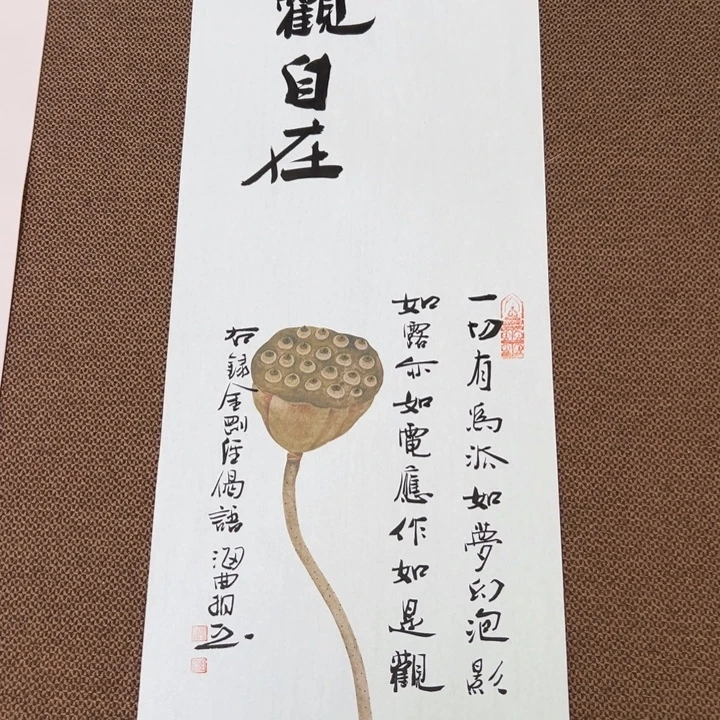 觀自在
一切有為法如夢幻泡影
如露亦如電應作如是觀
右錄金剛經偈語